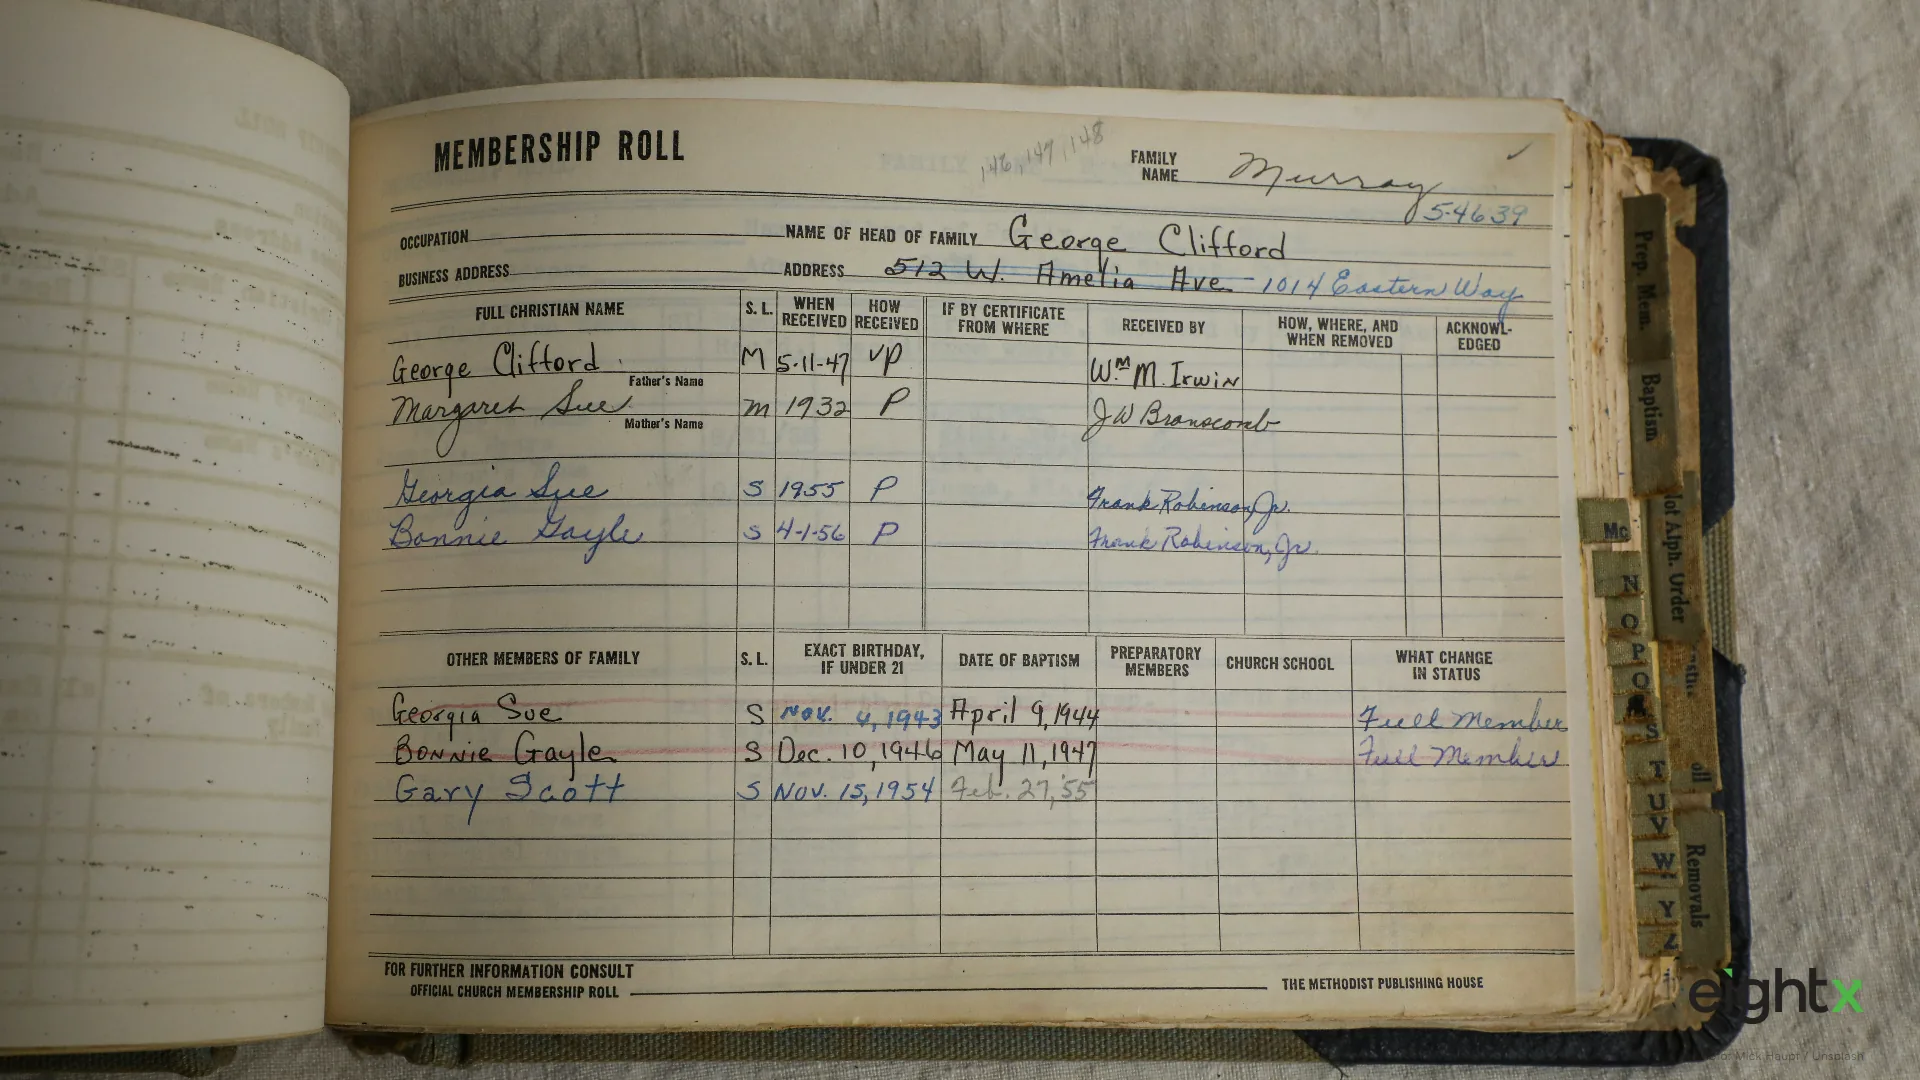 MEMBERSHIP ROLL
146, 147, 148
FAMILY NAME Murray
5-4639
OCCUPATION NAME OF HEAD OF FAMILY George Clifford
BUSINESS ADDRESS ADDRESS 512 W. Amelia Ave - 1014 Eastern Way
FULL CHRISTIAN NAME S. L. WHEN RECEIVED HOW RECEIVED IF BY CERTIFICATE FROM WHERE RECEIVED BY HOW, WHERE, AND WHEN REMOVED ACKNOWL-EDGED
George Clifford M 5-11-47 VP Wm M. Irwin
Father's Name
Margaret Sue M 1932 P J W Branscomb
Mother's Name
Georgia Sue S 1955 P Frank Robinson Jr.
Bonnie Gayle S 4-1-56 P Frank Robinson, Jr.
OTHER MEMBERS OF FAMILY S. L. EXACT BIRTHDAY, IF UNDER 21 DATE OF BAPTISM PREPARATORY MEMBERS CHURCH SCHOOL WHAT CHANGE IN STATUS
Georgia Sue S Nov. 4, 1943 April 9, 1944 Full Member
Bonnie Gayle S Dec. 10, 1946 May 11, 1947 Full Member
Gary Scott S Nov. 15, 1954 Feb. 27, '55
FOR FURTHER INFORMATION CONSULT
OFFICIAL CHURCH MEMBERSHIP ROLL THE METHODIST PUBLISHING HOUSE
Prep. Mem.
Baptism
Not Alph. Order
Removals
Mc
N
O
P
Q
S
T
U
V
W
Y
Z
eightx
Mick Haupt / Unsplash